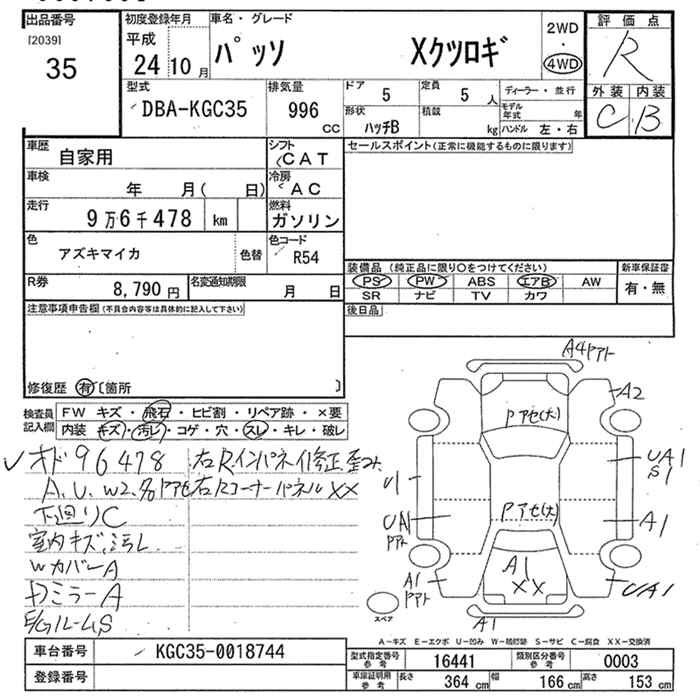 出品番号
[2039]
35
初度登録年月
平成
24 10 月
車名・グレード
パッソ Xクツロギ
2WD
・
4WD
評価点
R
外装 内装
C B
型式
DBA-KGC35
排気量
996
CC
ドア
5
定員
5 人
ディーラー・並行
形状
ハッチB
積載
kg
モデル年式 年
ハンドル 左・右
車歴
自家用
シフト
CAT
セールスポイント(正常に機能するものに限ります)
車検
年 月( 日)
冷房
AC
走行
9万6千478 km
燃料
ガソリン
色
アズキマイカ
色替
色コード
R54
装備品 (純正品に限り○をつけてください)
新車保証書
PS PW ABS エアB AW
SR ナビ TV カワ
有・無
R券
8,790 円
名変通知期限
月 日
後日品
注意事項申告欄(不具合内容等は具体的に記入して下さい)
修復歴 有〔箇所 〕
検査員
記入欄
FW キズ・飛石・ヒビ割・リペア跡・×要
内装 キズ・汚レ・コゲ・穴・スレ・キレ・破レ
オド96478 右R.インパネイ修正歪み
A.U.W2.多 右Rコーナーパネル XX
下廻りC
室内キズ.汚レ
WカバーA
ドミラーA
A4
A2
Pアセ(大)
UA1
S1
U1
Pアセ(大)
UA1
A1
A1
XX
A1
UA1
A1
スペア
A-キズ E-エクボ U-凹み W-補修跡 S-サビ C-腐食 XX-交換済
車台番号
KGC35-0018744
登録番号
型式指定番号
参考
16441
類別区分番号
参考
0003
車庫証明用
参考
長さ 364 cm
幅 166 cm
高さ 153 cm